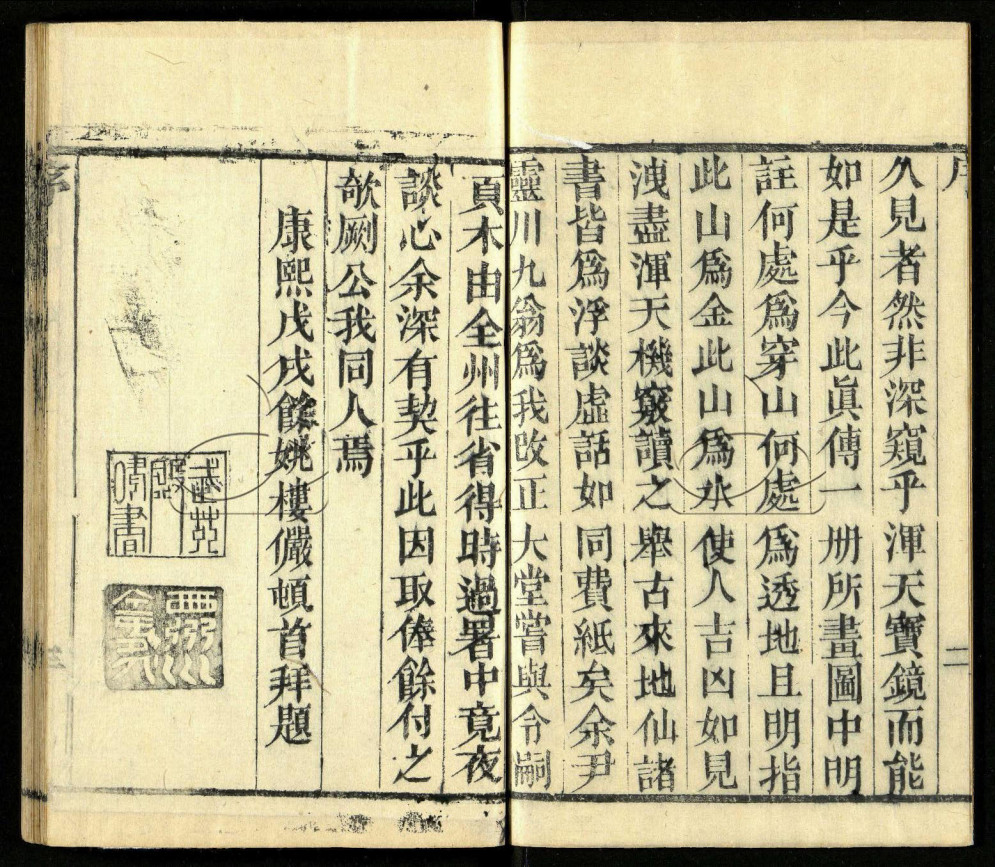 序
二
久見者然非深窺乎渾天寶鏡而能
如是乎今此眞傳一册所畫圖中明
註何處爲穿山何處爲透地且明指
此山爲金此山爲水使人吉凶如見
洩盡渾天機竅讀之舉古來地仙諸
書皆爲浮談虛話如同費紙矣余尹
靈川九翁爲我改正大堂嘗與令嗣
貢木由全州往省得時過署中竟夜
談心余深有契乎此因取俸餘付之
欹劂公我同人焉
康熙戊戌餘姚樓儼頓首拜題